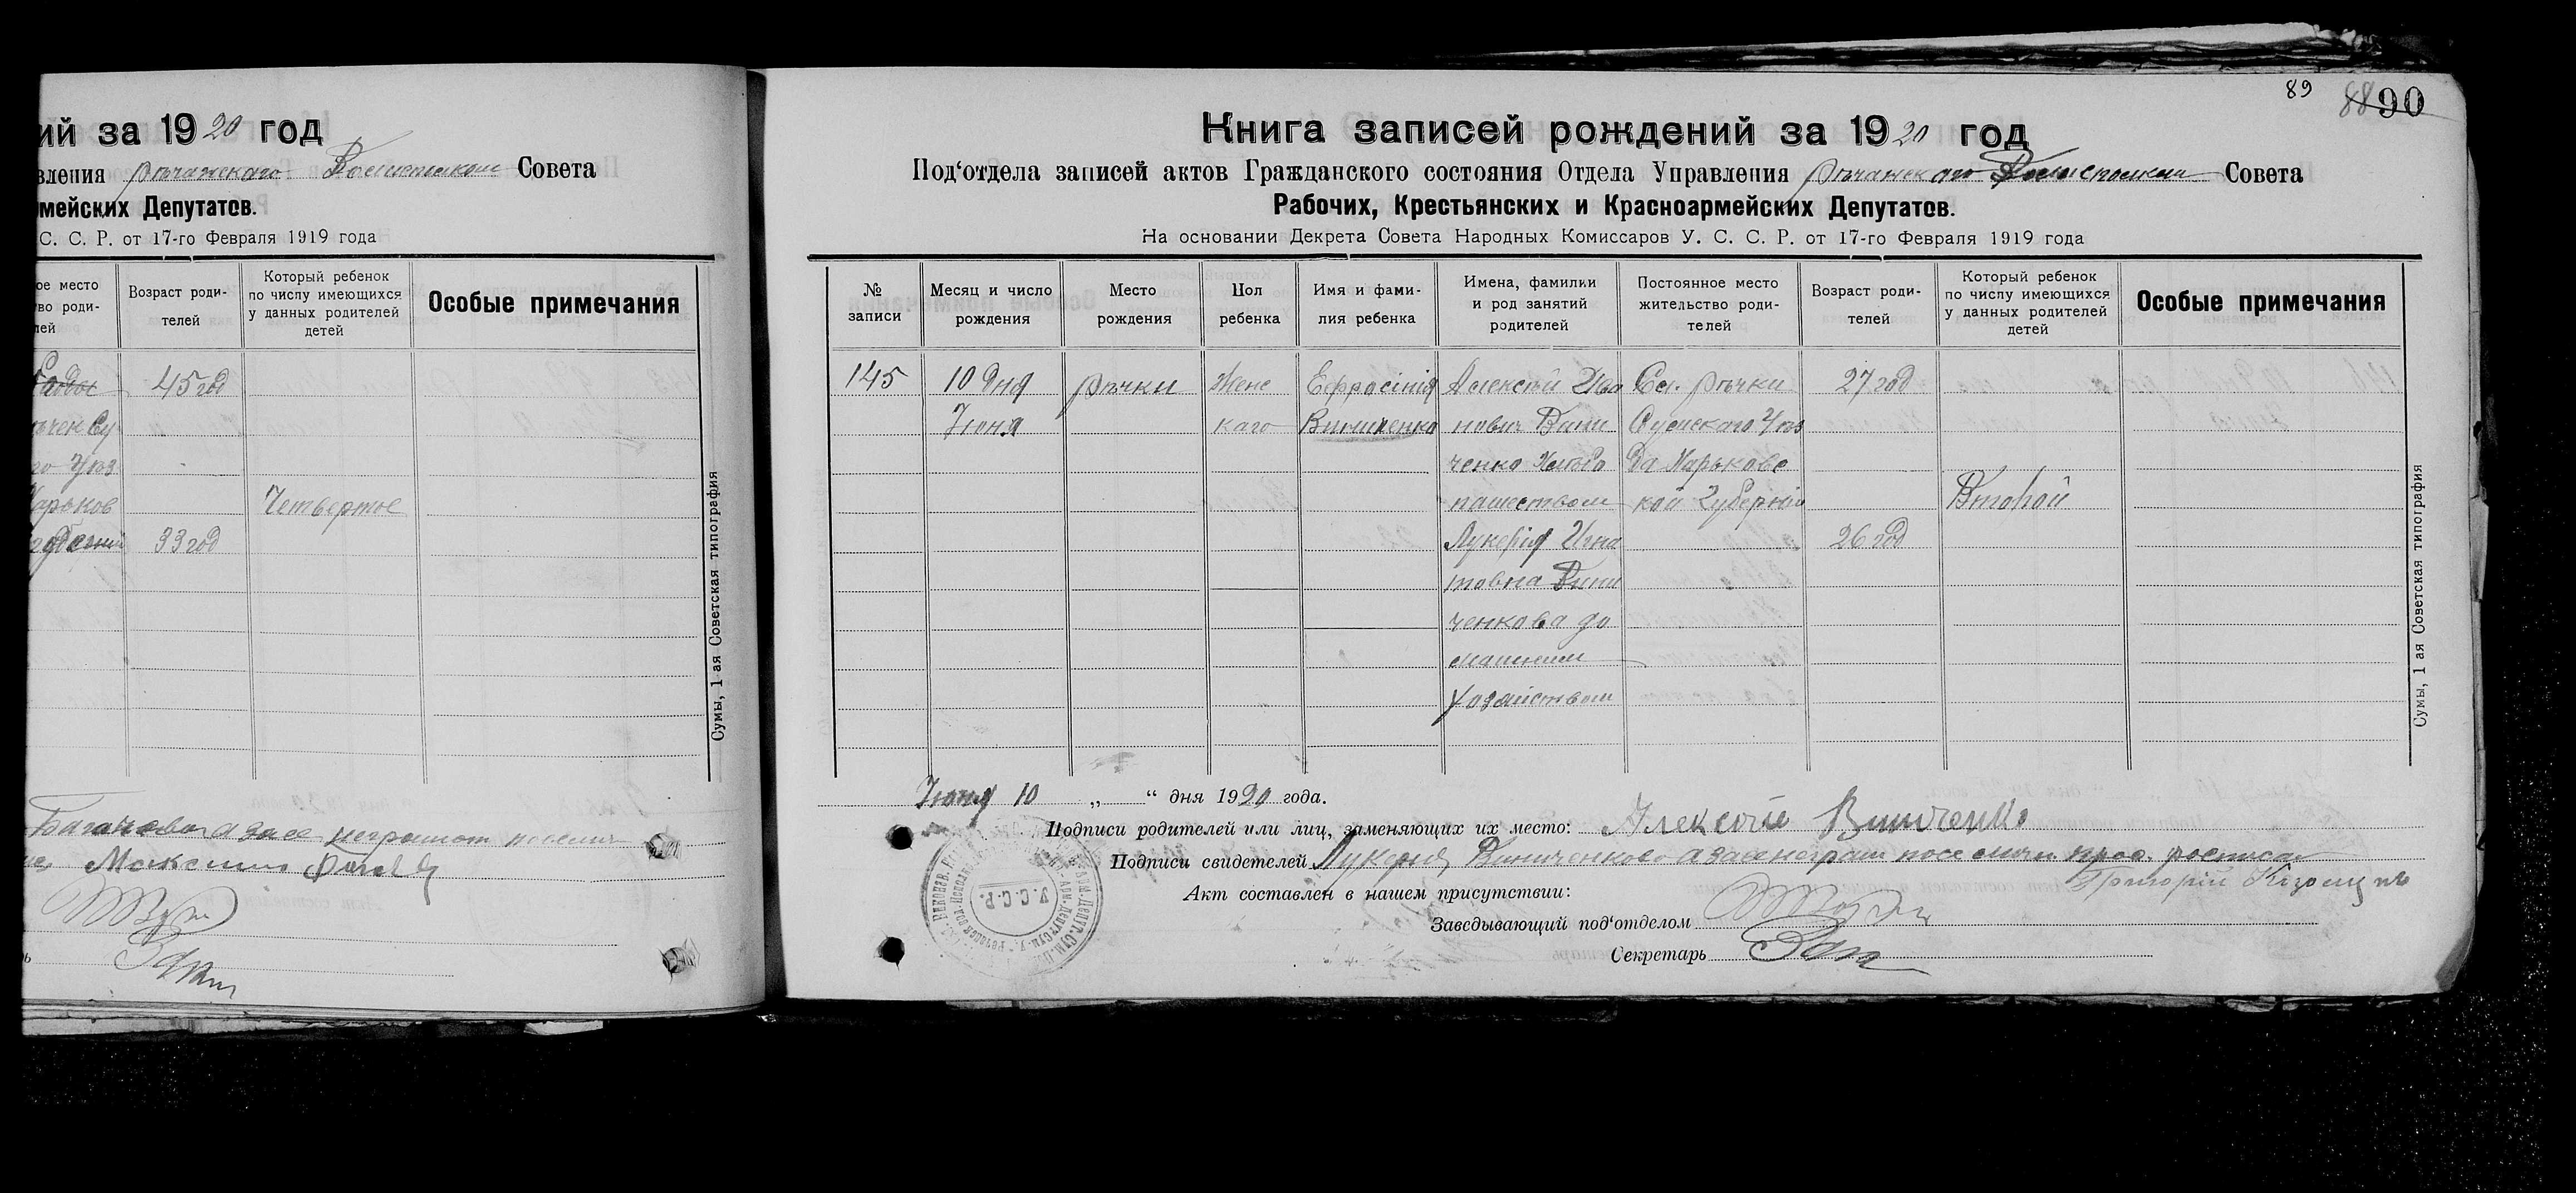 ий за 1920 год
вления Рѣчанскаго Совета
мейских Депутатов.
С. С. Р. от 17-го Февраля 1919 года
ое место
тво роди-
лей
Возраст роди-
телей
Который ребенок
по числу имеющихся
у данных родителей
детей
Особые примечания
45 год
ѣчен Су
го Уѣз
Харьков
Четвертое
33 год
Сумы, 1-ая Советская типография
а за ее неграмот
Максим
89
88 90
Книга записей рождений за 1920 год
Под'отдела записей актов Гражданского состояния Отдела Управления Рѣчанскаго Волисполком Совета
Рабочих, Крестьянских и Красноармейских Депутатов.
На основании Декрета Совета Народных Комиссаров У. С. С. Р. от 17-го Февраля 1919 года
№
записи
Месяц и число
рождения
Место
рождения
Пол
ребенка
Имя и фами-
лия ребенка
Имена, фамилки
и род занятий
родителей
Постоянное место
жительство роди-
телей
Возраст роди-
телей
Который ребенок
по числу имеющихся
у данных родителей
детей
Особые примечания
145 10 дня Рѣчки Женс Ефросінія Алексѣй Ива Сл. Рѣчки 27 год
Іюня каго Винниченко нович Вини Сумскаго Уѣз
ченко Хлѣбо да Харьковс
пашеством кой Губерніи Второй
Лукерія Игна 26 год
товна Вини
ченкова до
машним
хозяйством
Сумы, 1 ая Советская типография
Іюня 10 „ “ дня 1920 года.
Подписи родителей или лиц, заменяющих их место: Алексѣй Виниченко
Подписи свидетелей Лукерия Виниченкова а за ее неграм по ее личн. прос. росписал
Григорій
Акт составлен в нашем присутствии:
Заведывающий под'отделом
Секретарь
У.С.С.Р.